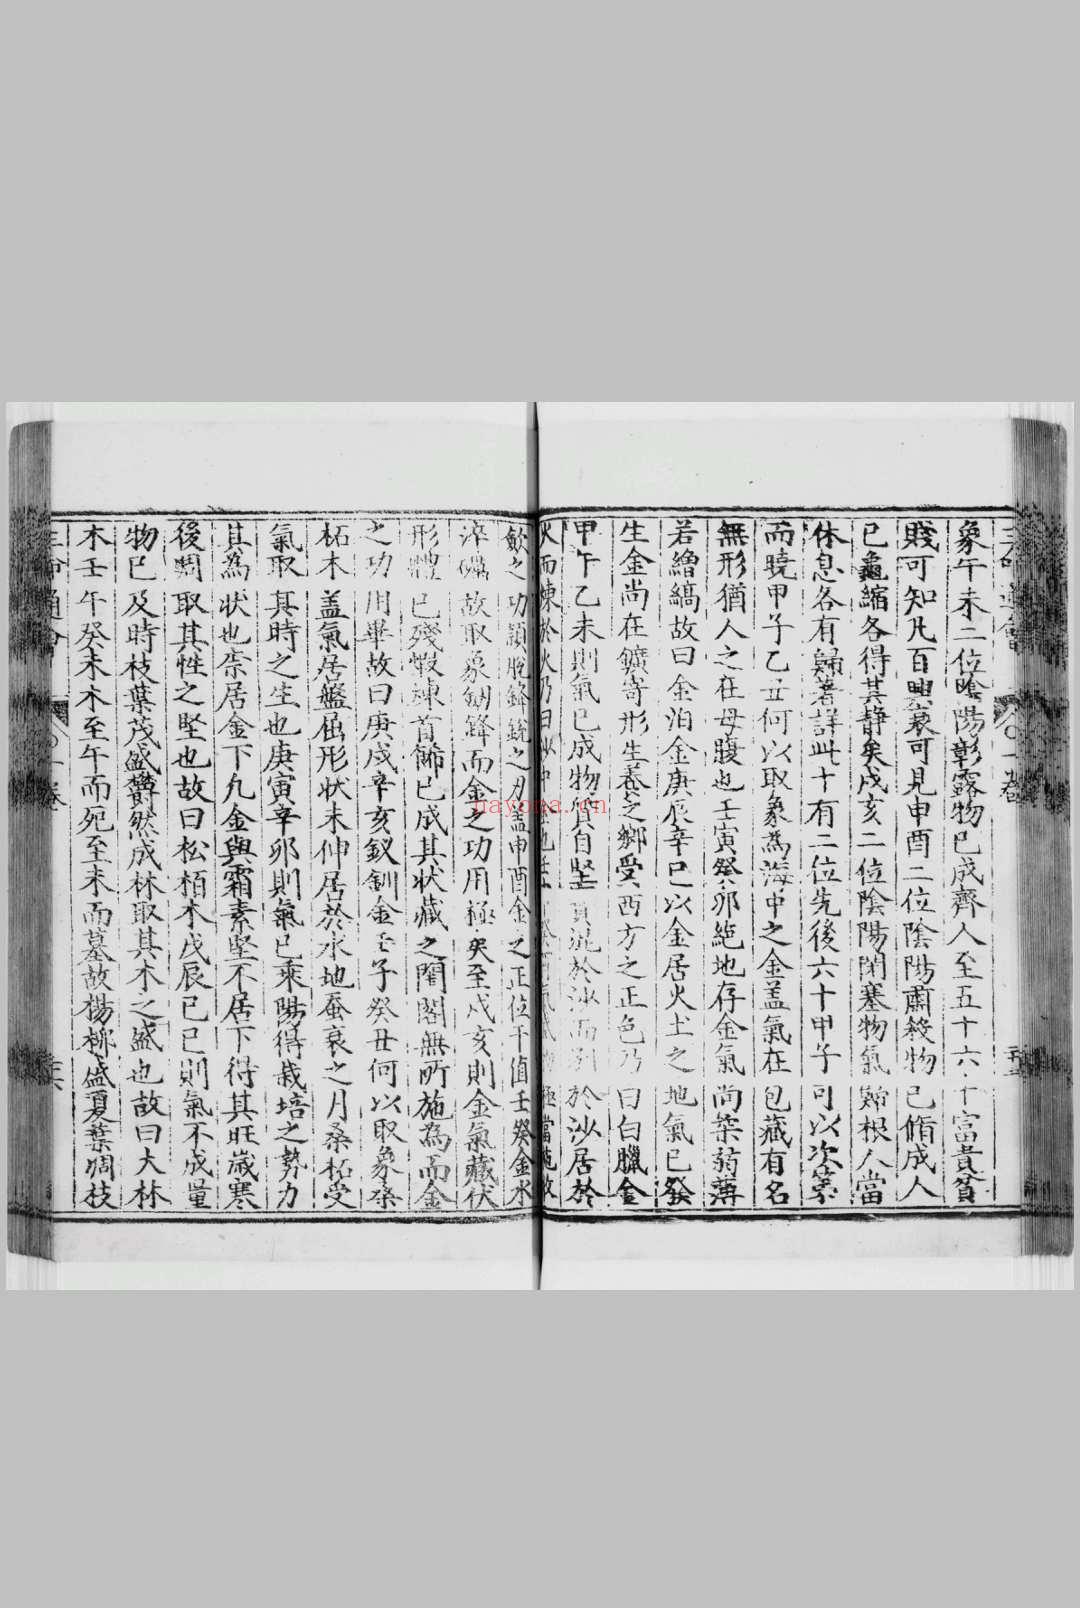 象午未二位陰陽彰露物已成齊人至五十六十富貴貧
賤可知凡百興衰可見申酉二位陰陽肅殺物已脩成人
已龜縮各得其靜矣戌亥二位陰陽閉塞物氣歸根人當
休息各有歸着詳此十有二位先後六十甲子可以次第
而曉甲子乙丑何以取象為海中之金盖氣在包藏有名
無形猶人之在母腹也壬寅癸卯絶地存金氣尚柔弱薄
若繒縞故曰金泊金庚辰辛巳以金居火土之地氣已發
生金尚在鑛寄形生養之鄉受西方之正色乃曰白臘金
甲午乙未則氣已成物質自堅 於沙而別於沙居於
火而煉於火乃曰沙中
歛之功頴脫鋒銳之刃盖申酉金之正位干值壬癸金水
淬礪故取象劒鋒而金之功用極矣至戌亥則金氣藏伏
形體已殘煅煉首飾已成其狀藏之閨閣無所施為而金
之功用畢故曰庚戌辛亥釵釧金壬子癸丑何以取象桑
柘木盖氣居盤屈形狀未伸居於水地蚕衰之月桑柘受
氣取其時之生也庚寅辛卯則氣已乘陽得栽培之勢力
其為狀也柰居金下凢金與霜素堅木居下得其旺歲寒
後凋取其性之堅也故曰松栢木戊辰己巳則氣不成量
物已及時枝葉茂盛欝然成林取其木之盛也故曰大林
木壬午癸未木至午而死至未而墓故楊柳盛夏葉凋枝